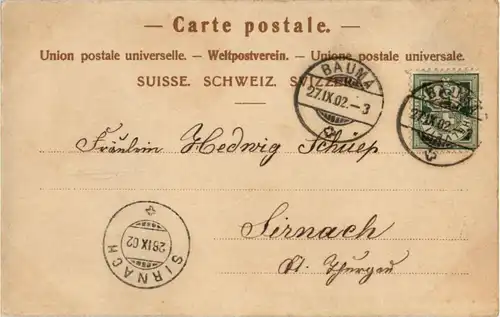 — Carte postale. —
Union postale universelle. – Weltpostverein. – Unione postale universale.
SUISSE. SCHWEIZ. SVIZZERA.
BAUMA
27.IX.02.–3
BAUMA
27.IX.02
Fräulein Hedwig Schüep
Sirnach
Ct. Thurgau
28 IX 02
SIRNACH